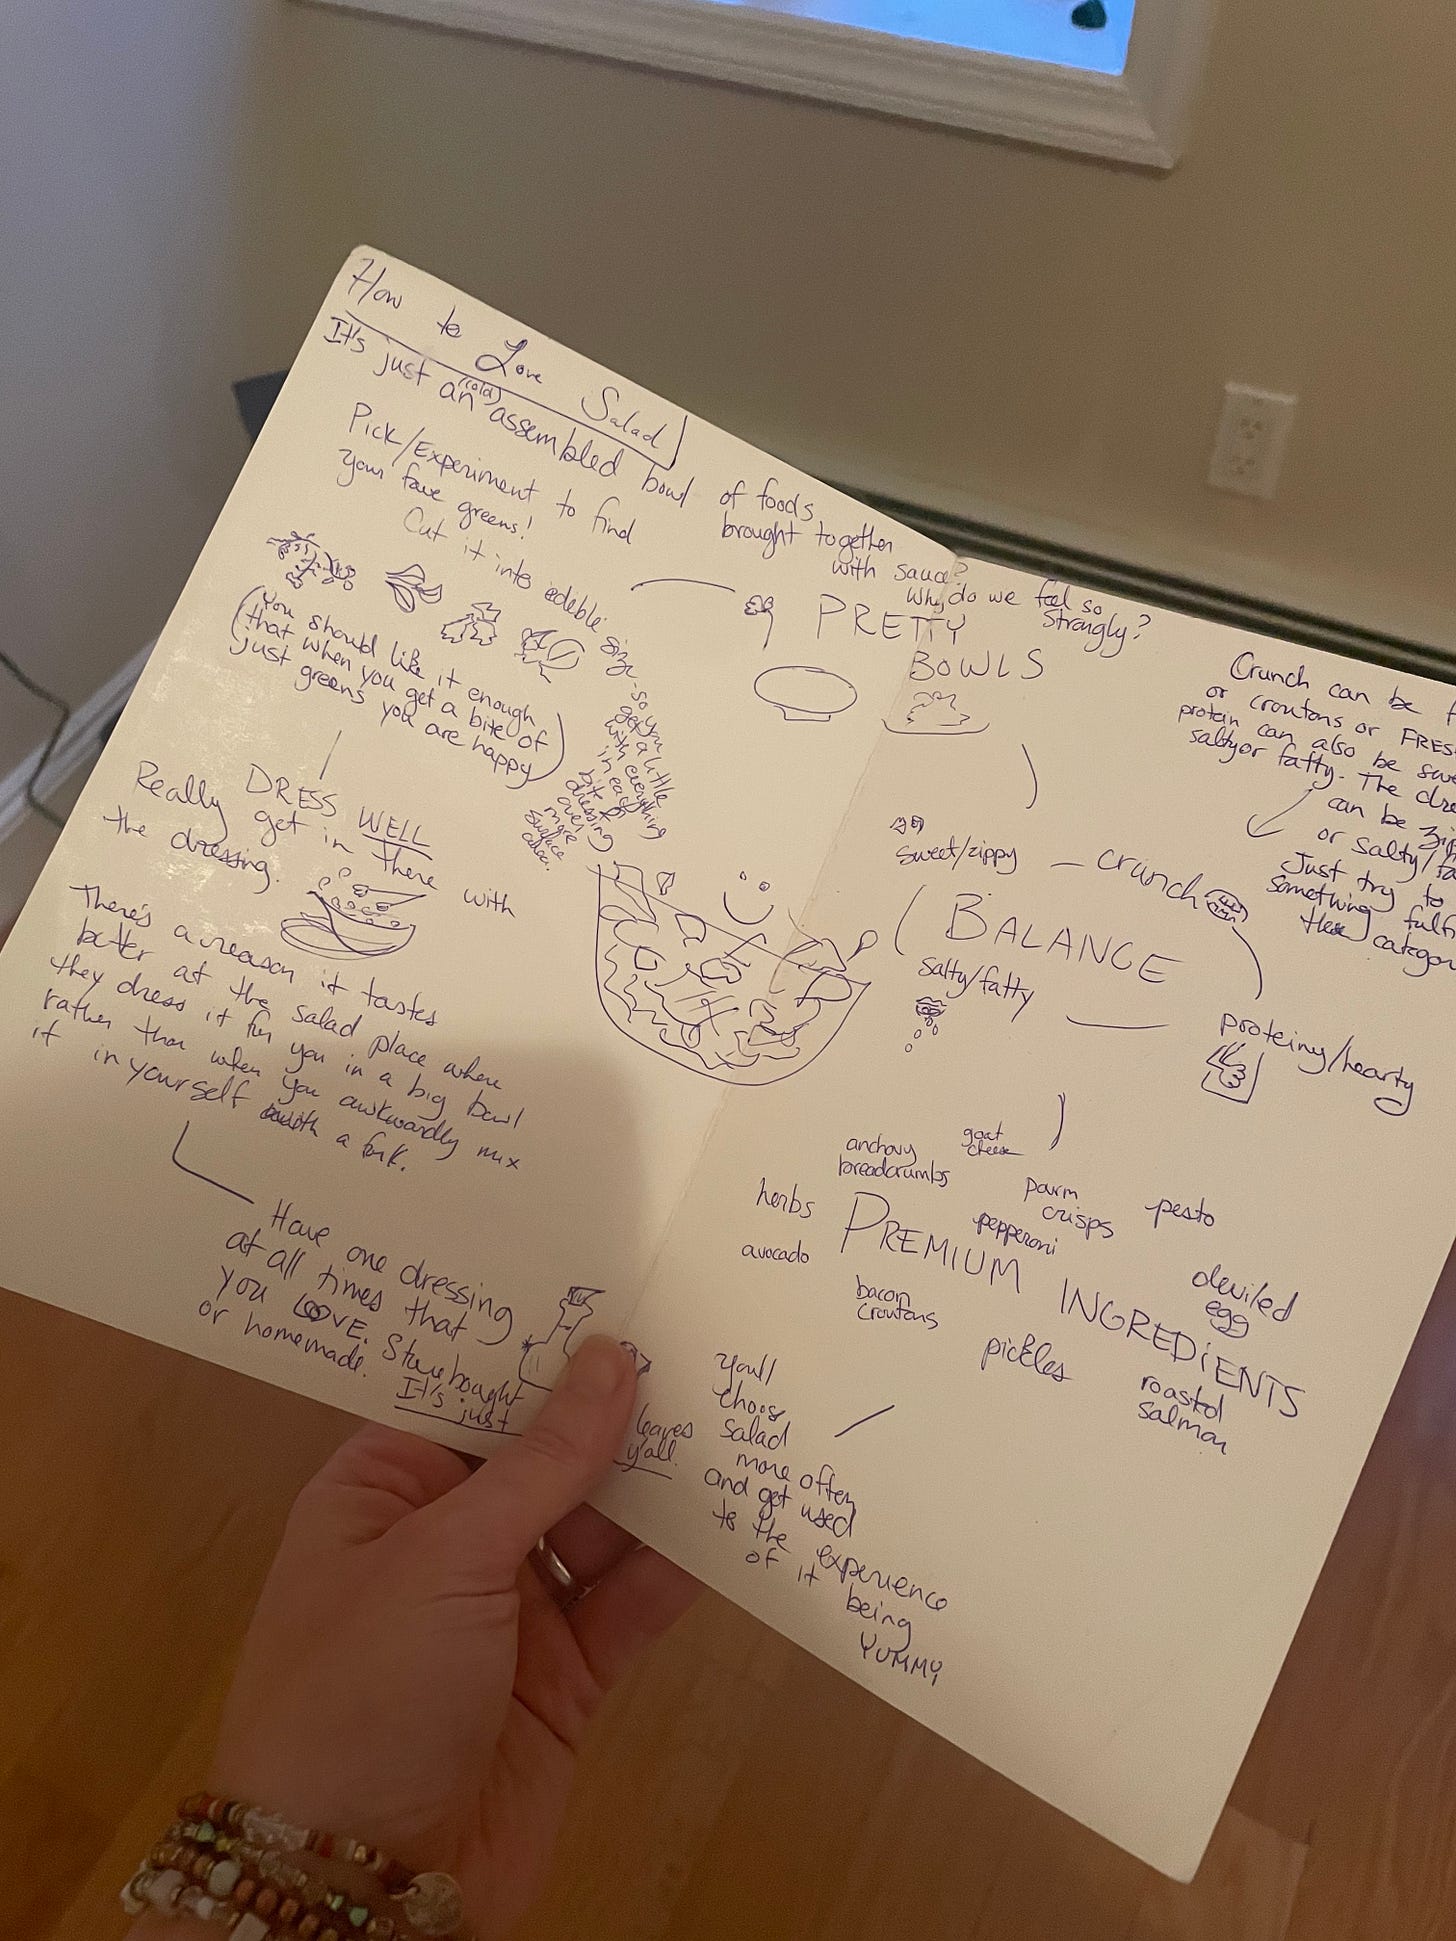 How to Love Salad
It's just an (cold) assembled bowl of foods
brought together
with sauce?
Why do we feel so
strangly?
Pick/Experiment to find
your fave greens!
Cut it into edeble size so you
get a little
with everything
in each
bite +
dressing
over
more
surface
area.
(You should like it enough
that when you get a bite of
just greens you are happy)
DRESS WELL
Really get in there with
the dressing.
There's a reason it tastes
better at the salad place where
they dress it for you in a big bowl
rather than when you awkwardly mix
it in yourself with a fork.
Have one dressing
at all times that
you LOVE. Store bought
or homemade.
It's just
leaves
y'all.
PRETTY
BOWLS
Crunch can be
or croutons or FRES
protein can also be swe
salty or fatty. The dre
can be zip
or salty/fa
Just try to
something fulfi
these categor
sweet/zippy
crunch
BALANCE
salty/fatty
proteiny/hearty
anchovy
breadcrumbs
goat
cheese
parm
crisps
pesto
herbs
PREMIUM INGREDIENTS
pepperoni
avocado
bacon
croutons
deviled
egg
pickles
roasted
salmon
you'll
choose
salad
more often
and get used
to the experience
of it being
YUMMY